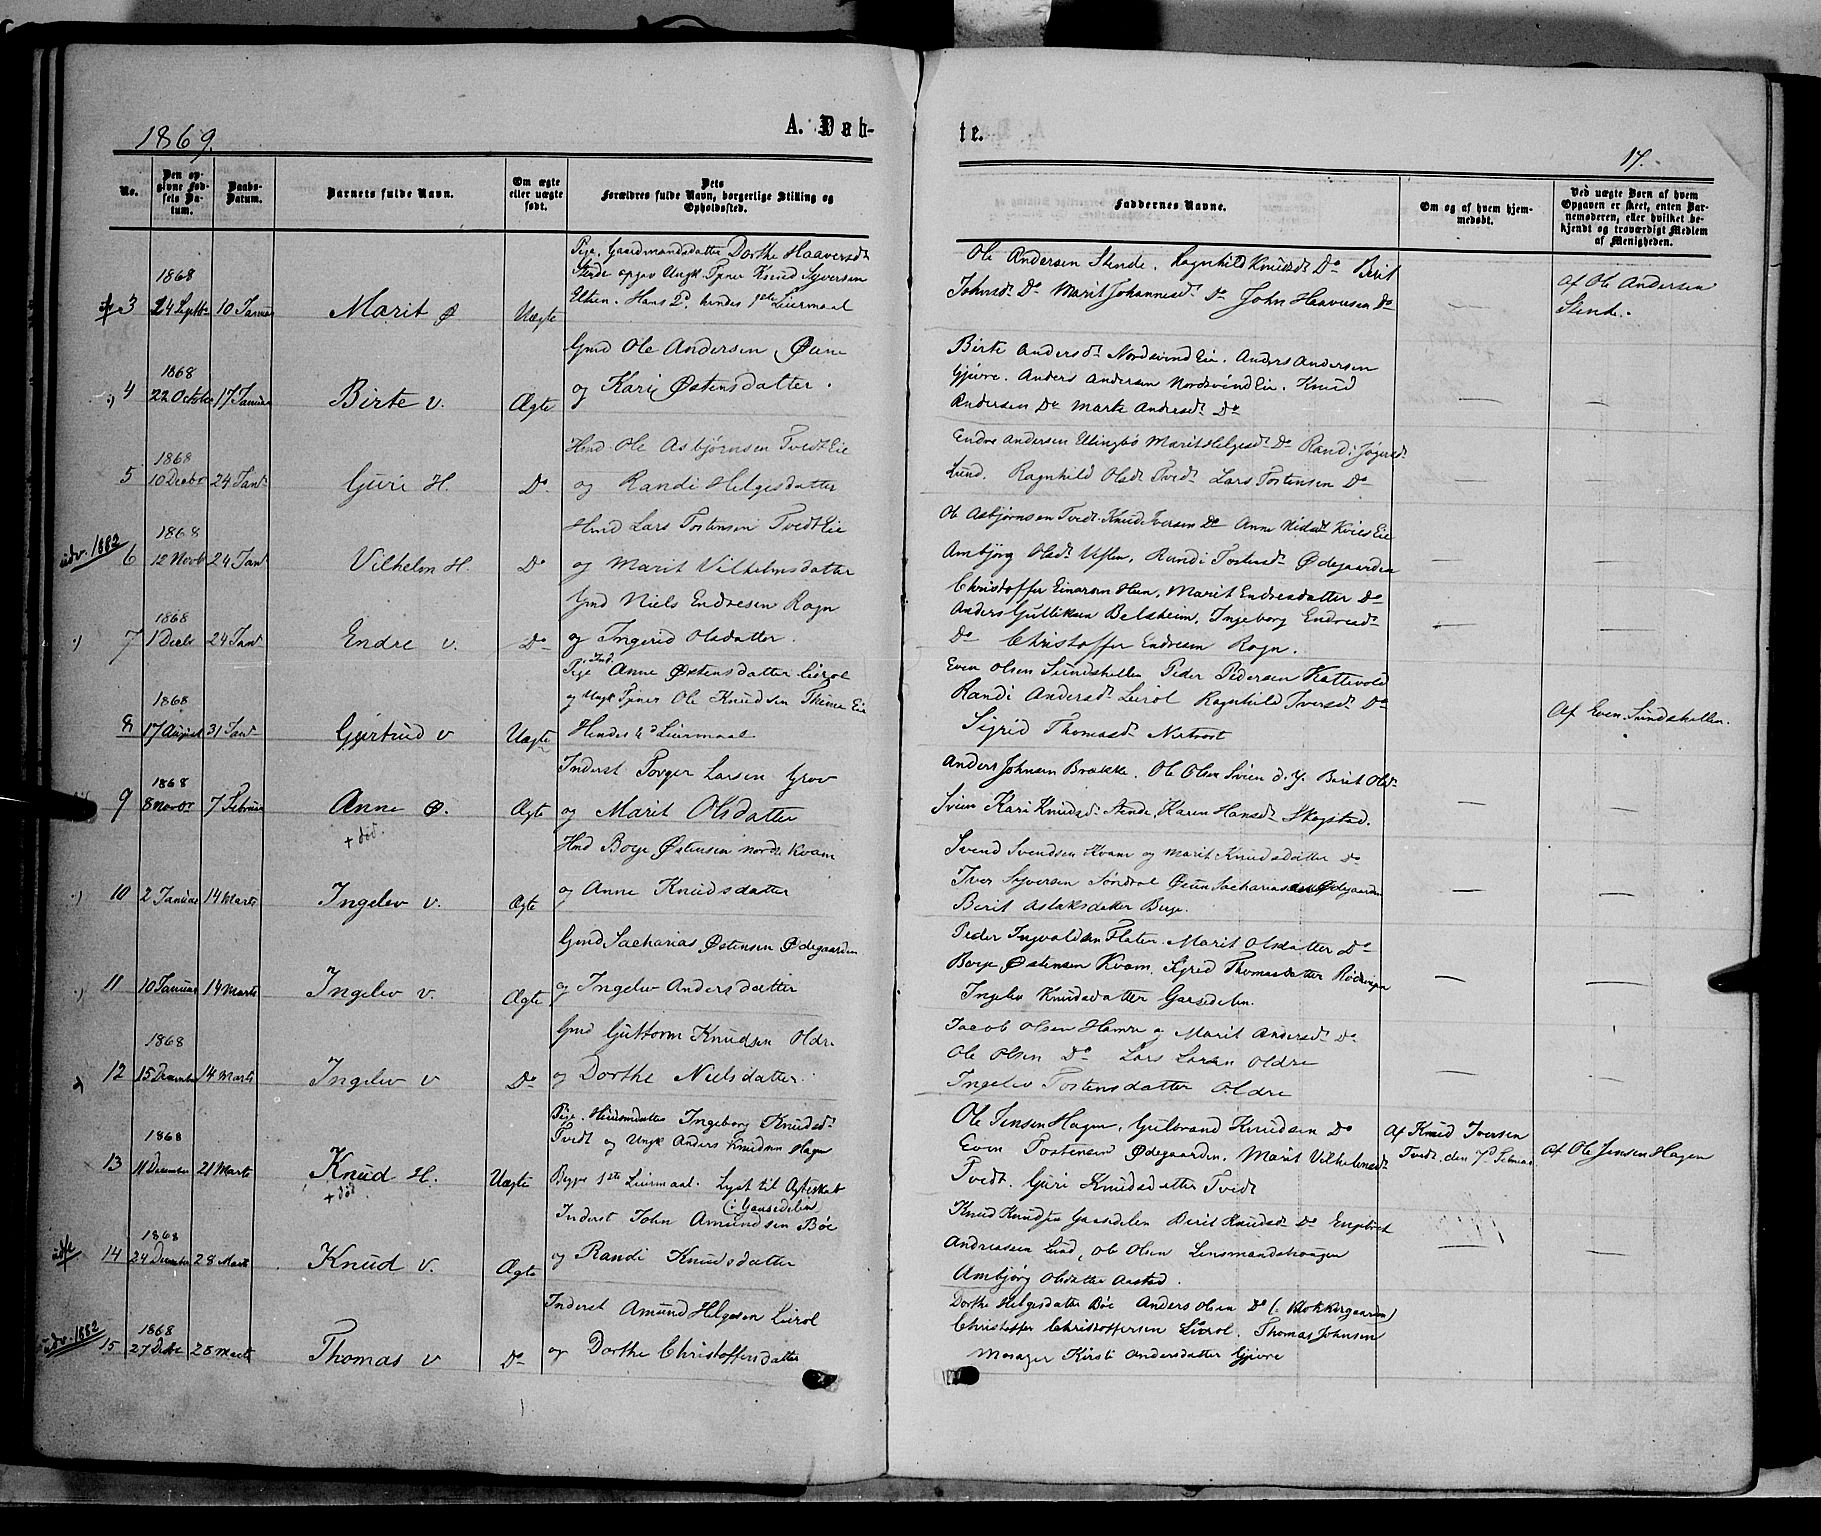 1869.
A. Døb-
te.
17.
No.
Den opgivne Fødsels Datum.
Daabs-Datum.
Barnets fulde Navn.
Om ægte eller uægte født.
Dets Forældres fulde Navn, borgerlige Stilling og Opholdssted.
Faddernes Navne.
Om og af hvem hjemmedøbt.
Ved uægte Børn af hvem Opgaven er skeet, enten Barnemoderen, eller hvilket bekjendt og troværdigt Medlem af Menigheden.
3 1868 24 Septbr 10 Januar Marit Ø Uægte
Pige, Gaardmandsdatter Dorthe Haaversdt
Stende opgav Ungk. Tjener Knud Syversen
Hans 2d hendes 1ste Leiermaal
Ole Andersen Stende. Ragnhild Knudsdt Do Berit
Johnsdt Do Marit Johannesdt Do John Haaversen Do
Af Ole Andersen
Stende.
4 1868 22 October 17 Januar Birte V. Ægte
Gmd Ole Andersen Øine
og Kari Østensdatter.
Birte Andersdt Nordsvend Eie. Anders Andersen
Gjevre. Anders Andersen Nordsvend Eie. Knud
Andersen Do Marte Andersdt Do
5 1868 10 Decbr 24 Jan Guri H. Do
Hmd Ole Asbjørnsen Tvedt Eie
og Randi Helgesdatter
Endre Andersen Ellingbø Marit Helgesdt Do Randi
Lund. Ragnhild Olsdt Tvedt Lars Tostensen Do
udv. 1882
6 1868 12 Novb 24 Jan Vilhelm H. Do
Hmd Lars Tostensen Tvedt Eie
og Marit Vilhelmsdatter
Ole Asbjørnsen Tvedt. Knud Iversen Do Anne
Ambjørg Olsdt Randi Tostensdt Ødegaarden
7 1868 1 Decbr 24 Jan Endre V. Do
Gmd Niels Endresen Rogn
og Ingerid Olsdatter.
Christoffer Einarsen Hen, Marit Endresdatter Do
Anders Guttiksen Belsheim, Ingeborg Endresdt
Do Christoffer Endresen Rogn.
8 1868 17 August 31 Jan Gjertrud V Uægte
Pige Ind. Anne Østensdatter Leirol
og Ungk Tjener Ole Knudsen Eie
Hendes Leiermaal
Even Olsen Sundshellen Peder Pedersen Kattevold
Randi Andersdt Leirol Ragnhild Iversdt Do
Sigrid Thomasdt
Af Even Sundshellen.
9 1868 8 Novbr 7 Februar Anne Ø. Ægte
+ død.
Inderst Torger Larsen Grov
og Marit Olsdatter
Anders Johnsen Brække. Ole Olsen Svien d. y. Berit Olsdt
Svien Kari Knudsdt Stende, Karen Hansdt Skogstad.
10 2 Januar 14 Marts Ingelev V. Ægte
Hmd Boye Østensen nordre Kvam
og Anne Knudsdatter
Svend Svendsen Kvam og Marit Knudsdatter Do
Iver Syversen Søndrol Øiun Sachariassen Ødegaarden
Berit Aslaksdatter Berge.
11 10 Januar 14 Marts Ingelev V. Ægte
Gmd Sacharias Østensen Ødegaarden
og Ingelev Andersdatter
Peder Ingvaldsen Flaten. Marit Olsdatter Do
Boye Østensen Kvam. Sigrid Thomasdatter
Ingelev Knudsdatter Garsedelen.
12 1868 15 December 14 Marts Ingelev V Do
Gmd Guttorm Knudsen Oldre
og Dorthe Nielsdatter.
Jacob Olsen Hamre og Marit Andersdt Do
Ole Olsen Do Lars Larsen Oldre
Ingelev Tostensdatter Oldre
13 1868 11 December 21 Marts Knud H. Uægte
+ død
Pige. Ingeborg Knudsdt
Tvedt og Ungk Anders Knudsen Hagen
Begges 1ste Leiermaal. Lyst til Ægteskab
Ole Jensen Hagen, Gulbrand Knudsen Do
Even Tostensen Ødegaarden. Marit Vilhelmsdt
Tvedt. Guri Knudsdatter Tvedt
Af Knud Iversen
Tvedt. den 7d Februar
Af Ole Jensen Hagen
14 1868 24 December 28 Marts Knud V. Ægte
(i Garsedelen
Inderst John Amundsen Bøe
og Randi Knudsdatter
Knud Knudsen Garsedelen Berit Knudsdt Do Engebret
Andreassen Lund, Ole Olsen Lensmandshaugen
Ambjørg Olsdatter Aastad.
udv. 1882
15 1868 27 Decbr 28 Marts Thomas V Do
Inderst Amund Helgesen Leirol
og Dorthe Christoffersdatter
Dorthe Helgesdatter Bøe Anders Olsen Do (Klokkergaarden)
Christoffer Christoffersen Leirol. Thomas Johnsen
Morager Kirsti Andersdatter Gjevre